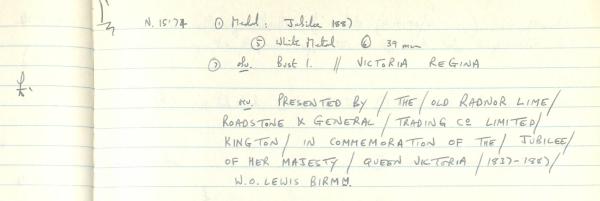 N. 15.74 ① Medal: Jubilee 1887
⑤ White Metal ⑥ 39 mm
⑦ obv. Bust l. // VICTORIA REGINA
rev. PRESENTED BY / THE / OLD RADNOR LIME /
ROADSTONE & GENERAL / TRADING Co LIMITED /
KINGTON / IN COMMEMORATION OF THE / JUBILEE /
OF HER MAJESTY / QUEEN VICTORIA / 1837-1887 /
W.O. LEWIS BIRMM.